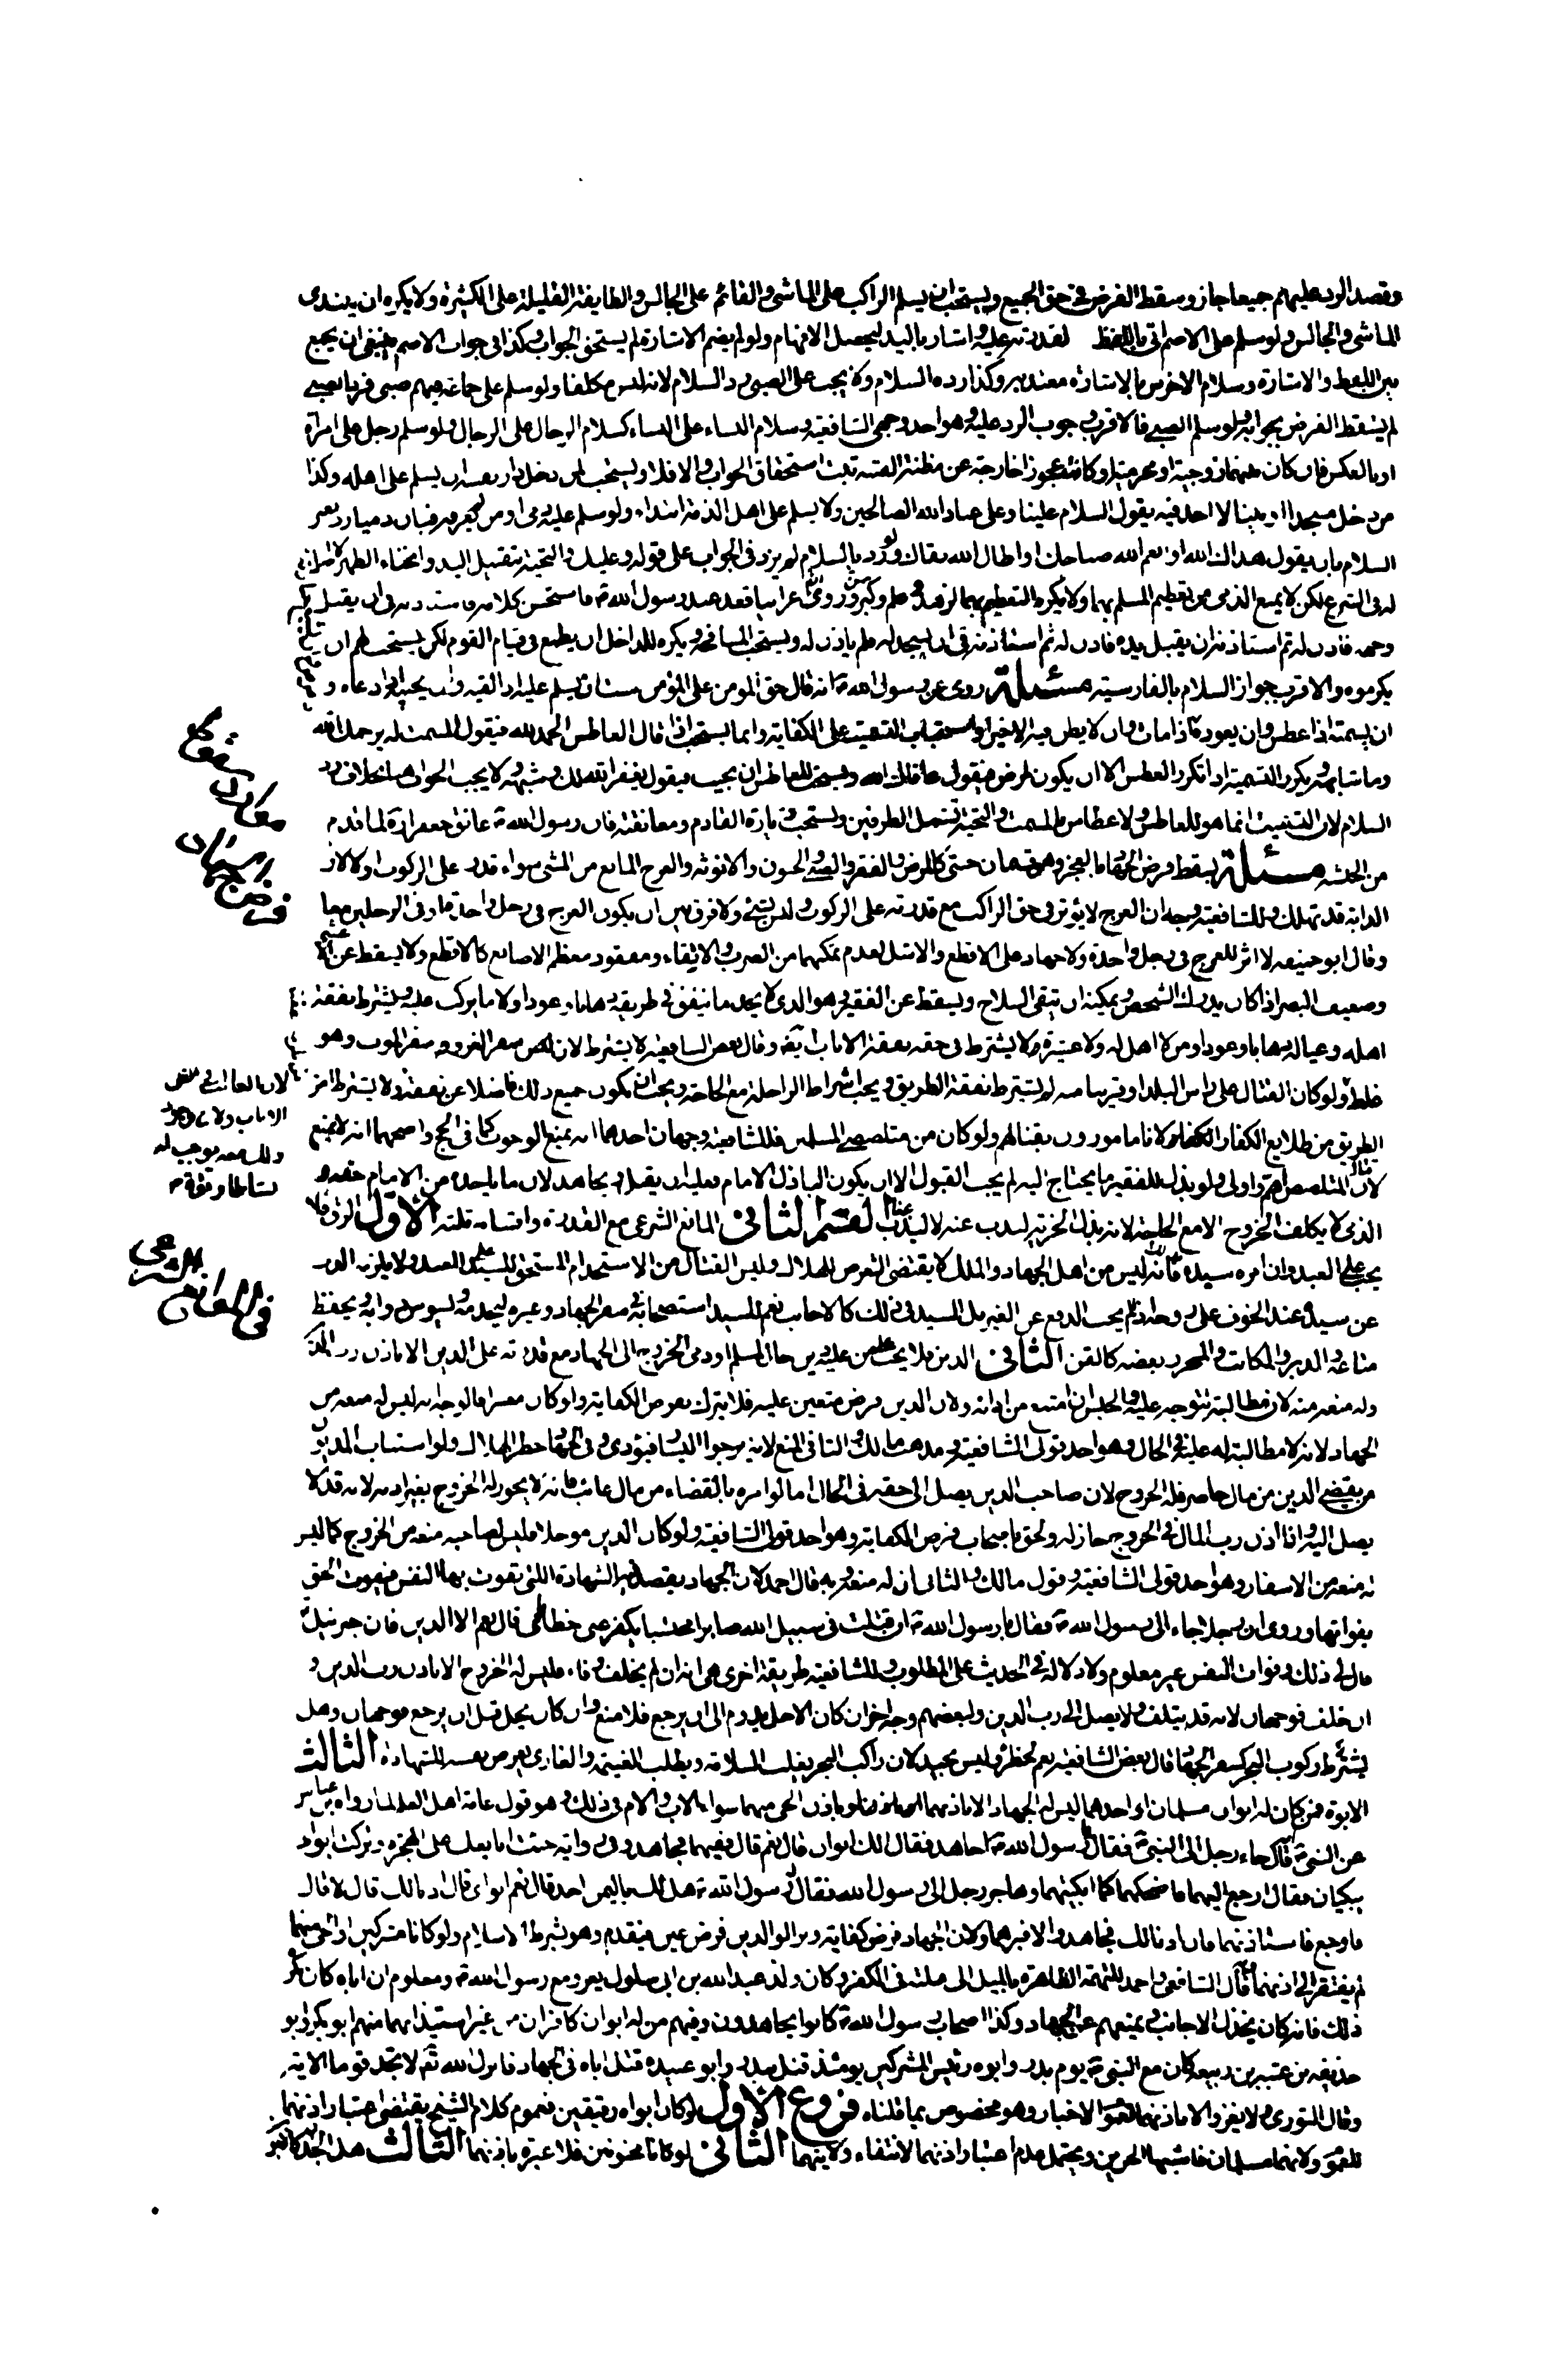 وقصد الرد عليهم جميعا جاز وسقط الفرض في حق الجميع ويستحب ان يسلم الراكب على الماشي والقائم على الجالس والطايفة القليلة على الكثيرة ولا يكره ان يبتدى
الماشي والجالس ولو سلم على الاصم اتى باللفظ لقدرته عليه واشار باليد ليحصل الافهام ولو لم يضم الاشارة لم يستحق الجواب وكذا في جواب الاصم ينبغي ان يجمع
بين اللفظ والاشارة وسلام الاخرس بالاشارة معتد به وكذا رده السلام ولا يجب على الصبى رد السلام لانه ليس مكلفا ولو سلم على جماعة فيهم صبى فرد الصبى
لم يسقط الفرض بجوابه ولو سلم الصبي فالاقرب وجوب الرد عليه وهو احد وجهي الشافعية وسلام النساء على النساء كسلام الرجال على الرجال ولو سلم رجل على امرأة
او بالعكس فان كان بينهما زوجية او محرمية او كانت عجوزا خارجة عن مظنة الفتنة ثبت استحقاق الجواب والا فلا ويستحب لمن دخل دار نفسه ان يسلم على اهله وكذا
من دخل مسجدا او بيتا لا احد فيه يقول السلام علينا وعلى عباد الله الصالحين ولا يسلم على اهل الذمة ابتداء ولو سلم عليه ذمى او من لم يعرفه فبان ذميا رد بغير
السلام بان يقول هداك الله او انعم الله صباحك او اطال الله بقاك ولو رد بالسلام لم يزد في الجواب على قوله وعليك والتحية بتقبيل اليد وانحناء الظهر لا اصل
له في الشرع لكن لا يمنع الذمى من تعظيم المسلم بهما ولا يكره التعظيم بهما لزهد وعلم وكبر سن وروى ان اعرابيا قعد عند رسول الله ص فاستحسن كلامه فاستاذنه في ان يقبل
وجهه فاذن له ثم استاذنه ان يقبل يده فاذن له ثم استاذنه في ان يسجد له فلم ياذن له ويستحب المصافحة ويكره للداخل ان يطمع في قيام القوم لكن يستحب لهم ان
يكرموه والاقرب جواز السلام بالفارسية مسئلة روى عن رسول الله ص انه قال حق المومن على المؤمن ست ان يسلم عليه اذا لقيه وان يجيبه اذا دعاه و
ان يسمته اذا عطس وان يعوده اذا مات وان لا يظن فيه الا خيرا واستحباب التسميت على الكفاية وانما يستحب اذا قال العاطس الحمد لله فيقول المسمت له يرحمك الله
وما شابهه ويكرر التسميت اذا تكرر العطس الا ان يكون لمرض فيقول عافاك الله ويستحب للعاطس ان يجيب فيقول يغفر الله لك وشبهه ولا يجب الجواب هنا بخلاف رد
السلام لان التسميت انما هو للعاطس ولا عطاس بالمسمت والتحية تشمل الطرفين ويستحب زيارة القادم ومعانقته فان رسول الله ص عانق جعفرا لما قدم
من الحبشة مسئلة يسقط فرض الجهاد بالعجز وهو قسمان حسي كالمرض والفقر والصبى والجنون والانوثة والعرج المانع من المشى سواء قدر على الركوب او لا لان
الدابة قد تهلك وللشافعية وجه ان العرج لا يؤثر في حق الراكب مع قدرته على الركوب وليس بشئ ولا فرق بين ان يكون العرج في رجل واحدة او في الرجلين معا
وقال ابو حنيفة لا اثر للعرج في رجل واحدة ولا جهاد على الاقطع والاشل لعدم تمكنهما من الضرب والاتقاء ومفقود معظم الاصابع كالاقطع ولا يسقط عن الاعشى
وضعيف البصر اذا كان يدرك الشخص ويمكنه ان يتقى السلاح ويسقط عن الفقير وهو الذي لا يجد ما ينفق في طريقه ذهابا وعودا ولا ما يركب عليه ويشترط نفقة
اهله وعياله ذهابا وعودا ومن لا اهل له ولا عشيرة ولا يشترط في حقه نفقة الاياب وقال بعض الشافعية لا يشترط لان سفر الغزو سفر الموت وهو
غلط ولو كان القتال على راس البلد او قريبا منه لم يشترط نفقة الطريق ويجب اشتراط الراحلة مع الحاجة ويجب ان يكون جميع ذلك فاضلا عن نفقة ولا يشترط امن
الطريق من طلايع الكفار لانا مامورون بقتالهم ولو كان من متلصصي المسلمين فللشافعية وجهان احدهما انه يمنع الوجوب كما في الحج واصحهما انه لا يمنع
لان قتال المتلصص اهم واولى ولو بذل للفقير ما يحتاج اليه لم يجب القبول الا ان يكون الباذل الامام فعليه ان يقبل ويجاهد لان ما ياخذه من الامام حقه و
الذمى لا يكلف الخروج الا مع الحاجة لانه بذل الجزية ليذب عنه لا ليذب عنا القسم الثاني المانع الشرعي مع القدرة واقسامه ثلثة الاول الرق فلا
يجب على العبد وان امره سيده فانه ليس من اهل الجهاد والملك لا يقتضى التعرض للهلاك وليس القتال من الاستخدام المستحق للسيد على العبد ولا يلزمه الدفع
عن سيده عند الخوف على روحه اذا لم يجب الدفع عن الغير بل السيد في ذلك كالاجانب نعم للسيد استصحابه في سفر الجهاد وغيره ليخدمه ويسوس دوابه ويحفظ
متاعه والمدبر والمكاتب والمحرر بعضه كالقن الثاني الدين فلا يجب على من عليه دين حال لمسلم او ذمى الخروج الى الجهاد مع قدرته على الدين الا باذن رب الدين
وله منعه منه لان مطالبته تتوجه عليه والحبس ان امتنع من ادائه ولان الدين فرض متعين عليه فلا يترك بفرض الكفاية ولو كان معسرا فالوجه انه ليس له منعه من
الجهاد لانه لا مطالبة له عليه في الحال وهو احد قولى الشافعية ومذهب مالك والثاني المنع لانه يرجوا اليسار فيؤدى وفي الجهاد خطر الهلاك ولو استناب المديون
من يقضي الدين من مال حاضر فله الخروج لان صاحب الدين يصل الى حقه في الحال اما لو امره بالقضاء من مال غائب فانه لا يجوز له الخروج بغير اذنه لانه قد لا
يصل اليه واذا اذن رب المال في الخروج جاز له ولحق باصحاب فرض الكفاية وهو احد قولى الشافعية ولو كان الدين موجلا فليس لصاحبه منعه من الخروج كما ليس
له منعه من الاسفار وهو احد قولى الشافعية وقول مالك والثاني ان له منعه وبه قال احمد لان الجهاد يقصد فيه الشهادة التي يفوت بها النفس فيفوت الحق
بفواتها وروى ان رجلا جاء الى رسول الله ص فقال يا رسول الله ص ان قتلت في سبيل الله صابرا محتسبا يكفر عنى خطاياى قال نعم الا الدين فان جبرئيل
قال لي ذلك وفوات النفس غير معلوم ولا دلالة في الحديث على المطلوب وللشافعية طريقة اخرى هى انه ان لم يخلف وفاء فليس له الخروج الا باذن رب الدين و
ان خلف فوجهان لانه قد يتلف ولا يصل الى رب الدين ولبعضهم وجه اخر ان كان الاجل يدوم الى ان يرجع فلا منع وان كان يحل قبل ان يرجع فوجهان وهل
يشترط ركوب البحر كسفر الجهاد قال بعض الشافعية نعم لخطره وليس بجيد لان راكب البحر يغلب السلامة ويطلب الغنيمة والغازى يعرض نفسه للشهادة الثالث
الابوة فمن كان له ابوان مسلمان او احدهما ليس له الجهاد الا باذنهما او باذن الحى منهما سواء الاب والام في ذلك وهو قول عامة اهل العلم لما رواه ابن عباس
عن النبي ص قال جاء رجل الى النبي ص فقال يا رسول الله ص اجاهد فقال الك ابوان قال نعم قال ففيهما فجاهد وفي رواية جئت ابايعك على الهجرة وتركت ابواى
يبكيان فقال ارجع اليهما فاضحكهما كما ابكيتهما وهاجر رجل الى رسول الله فقال له رسول الله ص هل لك باليمن احد قال نعم ابواى قال اذنا لك قال لا قال
فارجع فاستاذنهما فان اذنا لك فجاهد والا فبرهما ولان الجهاد فرض كفاية وبر الوالدين فرض عين فيقدم وهو بشرط الاسلام ولو كانا مشركين او الحى منهما
لم يفتقر الى اذنهما قال الشافعي واحمد للتهمة الظاهرة بالميل الى ملته في الكفر وكان ولد عبد الله بن ابى سلول يغزو مع رسول الله ص ومعلوم ان اباه كان يكره
ذلك فانه كان يخذل الاجانب ويمنعهم عن الجهاد وكذا اصحاب رسول الله ص كانوا يجاهدون وفيهم من له ابوان كافران من غير استيذانهما منهم ابو بكر وابو
حذيفة بن عتبة بن ربيعة كان مع النبي ص يوم بدر وابوه رئيس المشركين يومئذ قتل ببدر وابو عبيدة قتل اباه في الجهاد فانزل الله تعالى لا تجد قوما الاية
وقال الثورى لا يغزو الا باذنهما لعموم الاخبار وهو مخصوص بما قلناه فروع الاول لو كان ابواه رقيقين فعموم كلام الشيخ يقتضى اعتبار اذنهما
للعموم ولانهما مسلمان فاشبها الحرين ويحتمل عدم اعتبار اذنهما لانتفاء ولايتهما الثاني لو كانا مجنونين فلا عبرة باذنهما الثالث هل الجد كالاب